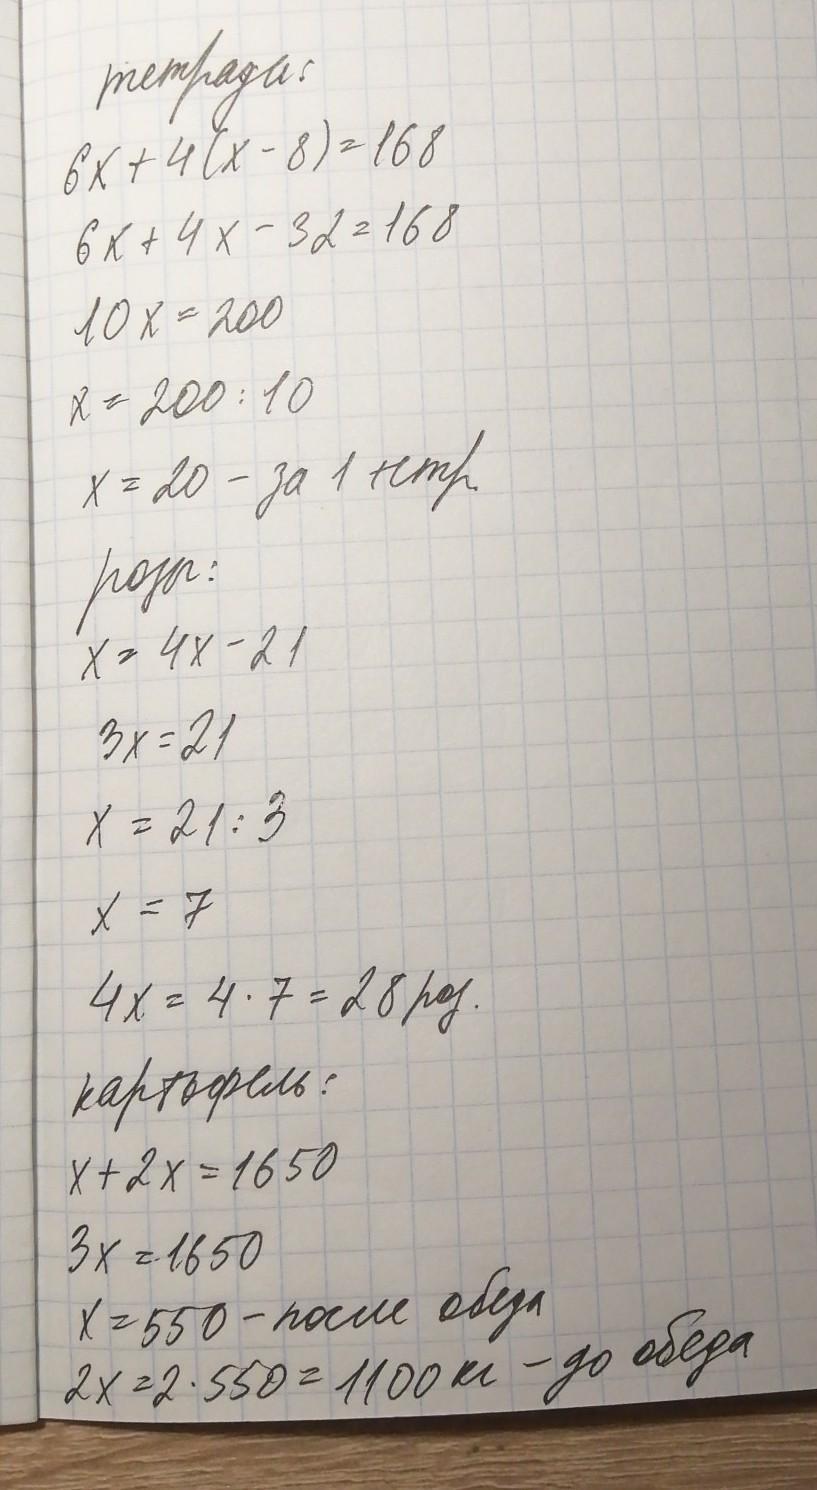 тетради:
6x + 4(x - 8) = 168
6x + 4x - 32 = 168
10x = 200
x = 200 : 10
x = 20 - за 1 тетр.
розы:
x = 4x - 21
3x = 21
x = 21 : 3
x = 7
4x = 4 · 7 = 28 роз.
картофель:
x + 2x = 1650
3x = 1650
x = 550 - после обеда
2x = 2 · 550 = 1100 кг - до обеда